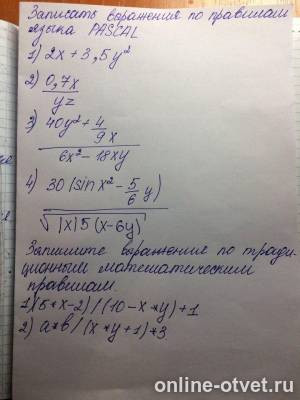 Записать выражения по правилам
языка PASCAL
1) 2x + 3,5y²
2) 0,7x
yz
3) 40y² + 4/9x
6x² - 18xy
4) 30 (sin x² - 5/6 y)
√|x|5 (x-6y)
Запишите выражение по тради-
ционными математическим
правилам.
1) (5*x-2) / (10-x*y)+1
2) a*b / (x*y+1)*3
online-otvet.ru